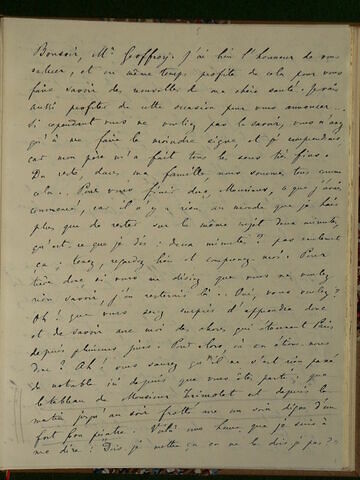 Bonsoir, Mr Geoffroy. J'ai bien l'honneur de vous
saluer, et en même temps profite de cela pour vous
faire savoir des nouvelles de ma chère santé. J'avais
aussi profiter de cette occasion pour vous annoncer...
Si cependant vous ne voulez pas le savoir, vous n'avez
qu'à me faire le moindre signe, et je comprendrai
car mon père m'a fait tous les sens très fins.
Du reste, dans ma famille, nous sommes tous comme
cela.. Pour vous finir donc, Monsieur, ce que j'avais
commencé, car il n'y a rien au monde que je hais
plus que de rester sur le même sujet deux minutes,
qu'est-ce que je dis : deux minutes ? pas seulement
ça, tenez, regardez bien et comprenez-moi. Pour
dire donc si vous me désirez que vous ne voulez
rien savoir, j'en resterais là.. Oui, vous voulez ?
Oh ! que vous serez surpris d'apprendre donc
et de savoir avec moi des choses qui étonnent Paris
depuis plusieurs jours. Pour lors, où en étions-nous
donc ? Ah ! vous saurez qu'il ne s'est rien passé
de notable ici depuis que vous êtes parti, que
le tableau de Monsieur Trimolet et depuis le
matin jusqu'au soir frotté avec un soin digne d'un
fort bon peintre. Voilà une heure que je suis à
me dire : Dois-je mettre ça ou ne le dois-je pas ?